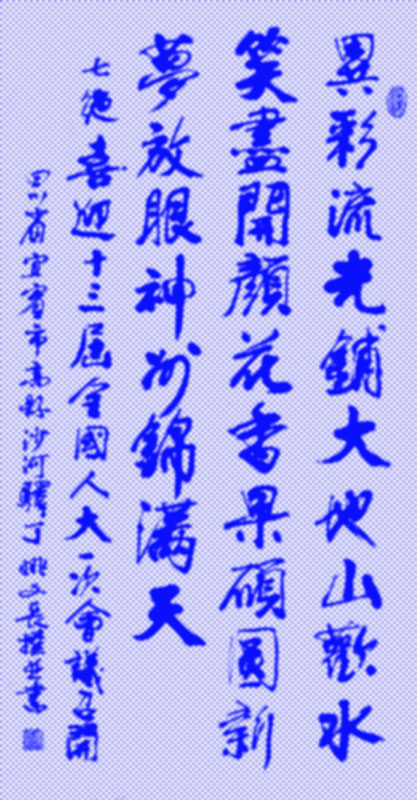 異彩流光鋪大地山歡水
笑盡開顏花香果碩圓新
夢放眼神州錦滿天
七絕喜迎十三屆全國人大一次會議召開
四川省宜賓市高縣沙河驛丁姚文長撰并書